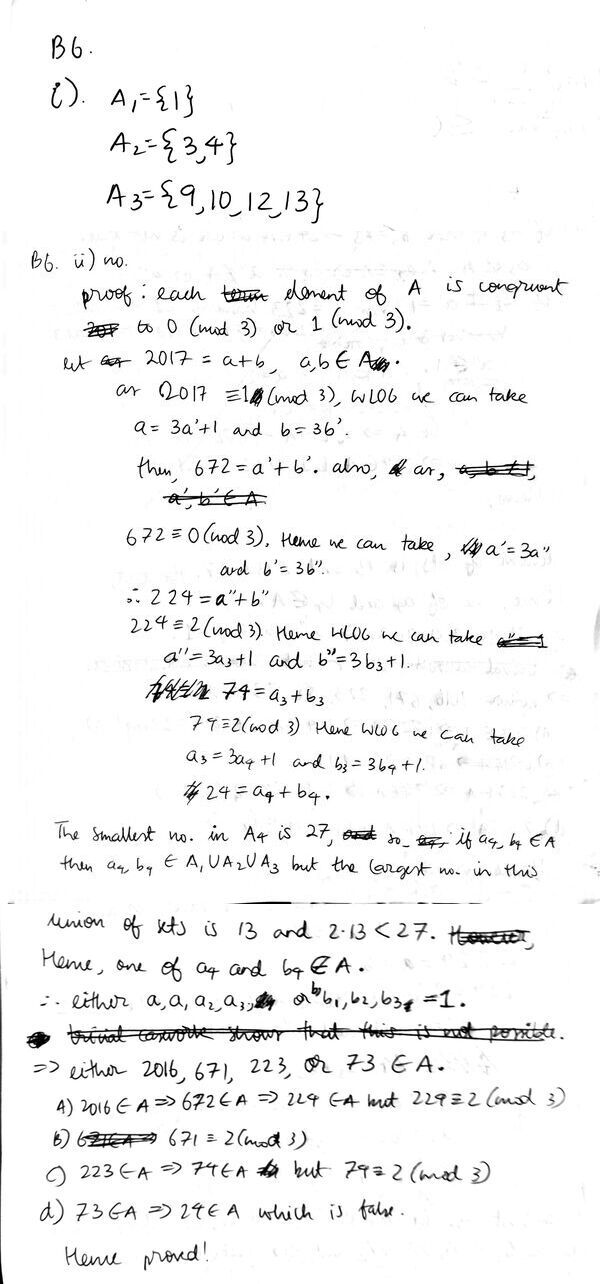 B6.
i). A₁={1}
A₂={3,4}
A₃={9,10,12,13}
B6. ii) no.
proof: each element of A is congruent
to 0 (mod 3) or 1 (mod 3).
let 2017 = a+b, a,b ∈ A.
as 2017 ≡1 (mod 3), WLOG we can take
a= 3a'+1 and b=3b'.
then, 672=a'+b'. also, as,
672≡0(mod 3), Hence we can take, a'=3a"
and b'=3b".
∴ 224=a"+b"
224≡2(mod 3) Hence WLOG we can take
a"=3a₃+1 and b"=3b₃+1.
74=a₃+b₃
74≡2(mod 3) Hence WLOG we can take
a₃=3a₄+1 and b₃=3b₄+1.
24=a₄+b₄.
The smallest no. in A₄ is 27, so if a₄, b₄ ∈A
then a₄, b₄ ∈ A₁∪A₂∪A₃ but the largest no. in this
union of sets is 13 and 2·13<27.
Hence, one of a₄ and b₄ ∉ A.
∴ either a,a,a₂,a₃, or b,b₁,b₂,b₃ =1.
trivial casework shows that this is not possible.
=> either 2016, 671, 223, or 73 ∈A.
A) 2016∈A => 672∈A => 224 ∈A but 224≡2(mod 3)
b) 671≡2(mod 3)
c) 223∈A => 74∈A but 74≡2(mod 3)
d) 73∈A => 24∈A which is false.
Hence proved!